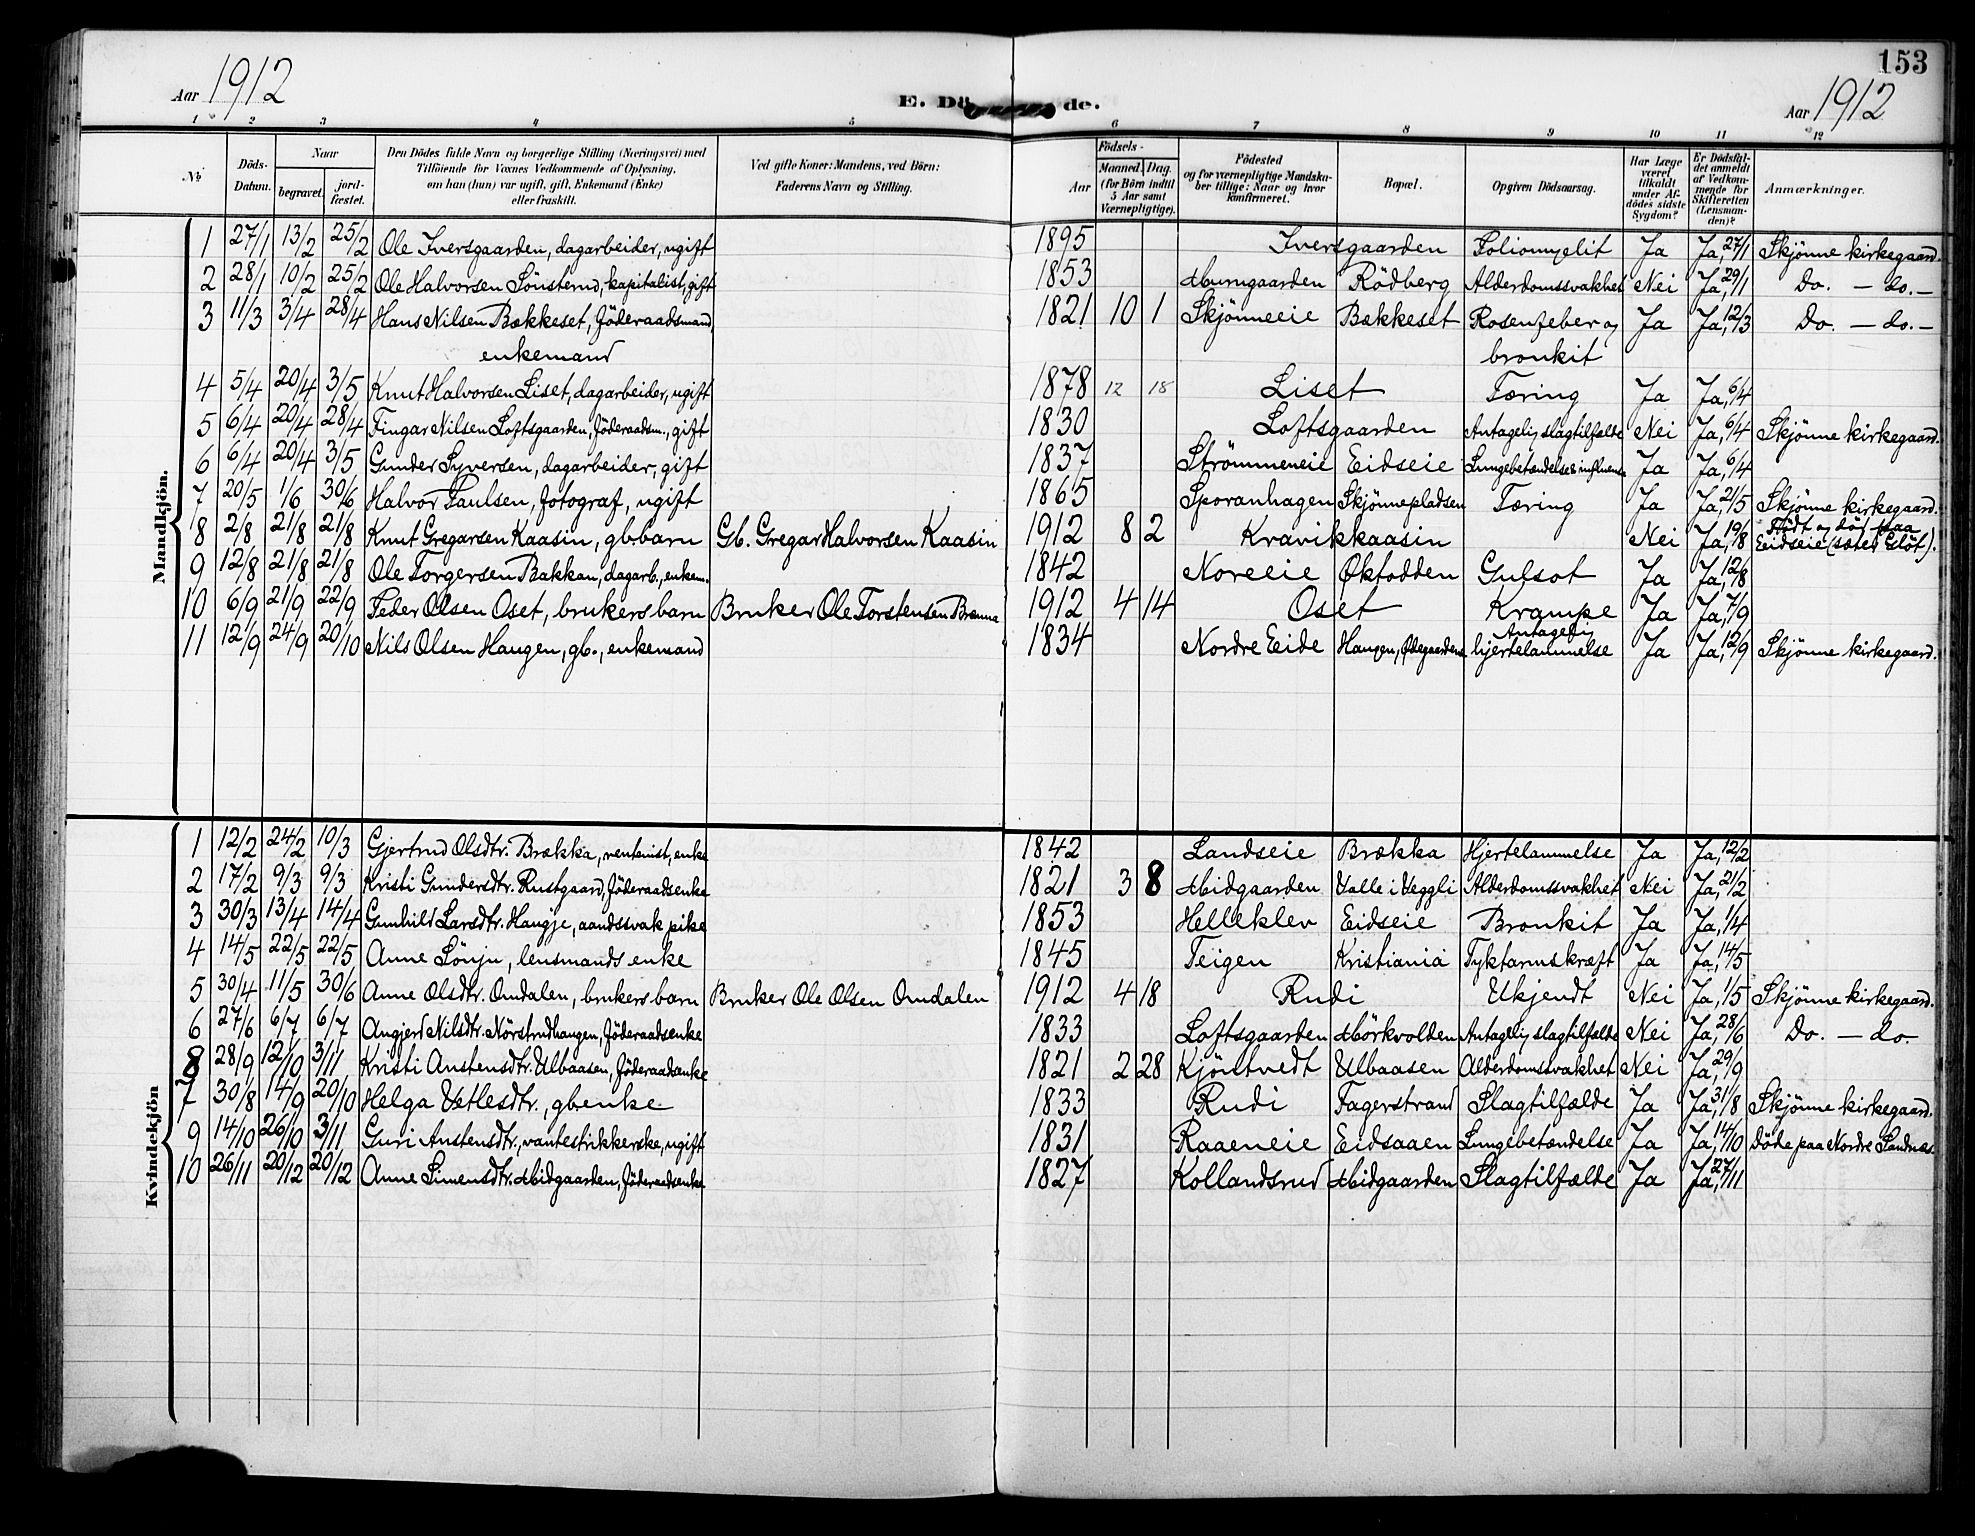 153
Aar 1912
E. Dö de.
Aar 1912
1 2 3 4 5 6 7 8 9 10 11 12
№ Döds-Datum. Naar begravet. jord-fæstet. Den Dödes fulde Navn og borgerlige Stilling (Næringsvei) med Tilföiende for Voxnes Vedkommende af Oplysning, om han (hun) var ugift, gift, Enkemand (Enke) eller fraskilt. Ved gifte Koner: Mandens, ved Börn: Faderens Navn og Stilling. Födsels- Aar Maaned. Dag. (for Börn indtil 5 Aar samt Værnepligtige). Födested og for værnepligtige Mandskaber tillige: Naar og hvor konfirmeret. Bopæl. Opgiven Dödsaarsag. Har Læge været tilkaldt under Afdödes sidste Sygdom? Er Dödsfaldet anmeldt af Vedkommende for Skifteretten (Lensmanden)? Anmærkninger.
Mandkjön.
1 27/1 13/2 25/2 Ole Iversgaarden, dagarbeider, ugift 1895 Iversgaarden Poliomyelit Ja Ja, 27/1 Skjønne kirkegaard.
2 28/1 10/2 25/2 Ole Halvorsen Sönsterud, kapitalist, gift 1853 Rödberg Alderdomssvakhet Nei Ja, 29/1 Do. — do. —
3 11/3 3/4 28/4 Hans Nilsen Bækkeset, föderaadsmand, 1821 10 1 Skjönneeie Bækkeset Rosenfeber og Ja Ja, 12/3 Do. — do. —
enkemand bronkit
4 5/4 20/4 3/5 Knut Halvorsen Liset, dagarbeider, ugift 1878 12 18 Liset Tæring Ja Ja, 6/4
5 6/4 20/4 28/4 Fingar Nilsen Loftsgaarden, föderaadsm., gift 1830 Loftsgaarden Antagelig slagtilfælde Nei Ja, 6/4 Skjønne kirkegaard.
6 6/4 20/4 3/5 Gunder Syversen, dagarbeider, gift 1837 Strömmeneie Eidseie Lungebetændelse & influensa Ja Ja, 6/4
7 20/5 1/6 30/6 Halvor Paulsen, fotograf, ugift 1865 Sporanhagen Skjönnepladsen Tæring Ja Ja, 21/5 Skjønne kirkegaard.
8 2/8 21/8 21/8 Knut Gregarsen Kaasin, gb. barn Gb. Gregar Halvorsen Kaasin 1912 8 2 Kravikkaasin Nei Ja, 19/8 Födt og död paa Eidseie
9 12/8 21/8 21/8 Ole Torgersen Bakkan, dagarb., enkem. 1842 Noreeie Øktodden Gulsot Ja Ja, 12/8
10 6/9 21/9 22/9 Peder Olsen Oset, brukers barn Bruker Ole Torstensen Brænna 1912 4 14 Oset Krampe Ja Ja, 7/9
11 12/9 24/9 20/10 Nils Olsen Haugen, gb., enkemand 1834 Nordre Eide Haugen, Ødegaardens Antagelig hjertelammelse Ja Ja, 12/9 Skjønne kirkegaard.
Kvindekjön
1 12/2 24/2 10/3 Gjertrud Olsdtr. Brække, rentenist, enke 1842 Landseie Brække Hjertelammelse Ja Ja, 12/2
2 17/2 9/3 9/3 Kristi Gundersdtr. Rustgaard, föderaadsenke 1821 3 8 Midgaarden Valle i Veggli Alderdomssvakhet Nei Ja, 21/2
3 30/3 13/4 14/4 Gunhild Larsdtr. Haugje, aandssvak pike 1853 Helleklev Eidseie Bronkit Ja Ja, 1/4
4 14/5 22/5 22/5 Anne Lönju, lensmands enke 1845 Teigen Kristiania Tyktarmskræft Ja Ja, 14/5
5 30/4 11/5 30/6 Anne Olsdtr. Omdalen, brukers barn Bruker Ole Olsen Omdalen 1912 4 18 Rudi Ukjendt Nei Ja, 1/5 Skjønne kirkegaard.
6 27/6 6/7 6/7 Angjerd Nilsdtr. Nörstrudhaugen, föderaadsenke 1833 Loftsgaarden Mörkvolden Antagelig slagtilfælde Nei Ja, 28/6 Do. — do.
8 28/9 12/10 3/11 Kristi Anstensdtr. Ulbaasen, föderaadsenke 1821 2 28 Kjöntvedt Ulbaasen Alderdomssvakhet Nei Ja, 29/9
7 30/8 14/9 20/10 Helga Vetlesdtr., gb. enke 1833 Rudi Fagerstrand Slagtilfælde Ja Ja, 31/8 Skjønne kirkegaard.
9 14/10 26/10 3/11 Guri Anstensdtr., vantestrikkerske, ugift 1831 Raaeneie Eidsaaen Lungebetændelse Ja Ja, 14/10 Döde paa Nordre Sandnæs.
10 26/11 20/12 20/12 Anne Simensdtr. Midgaarden, föderaadsenke 1827 Kollandsrud Midgaarden Slagtilfælde Ja Ja, 27/11